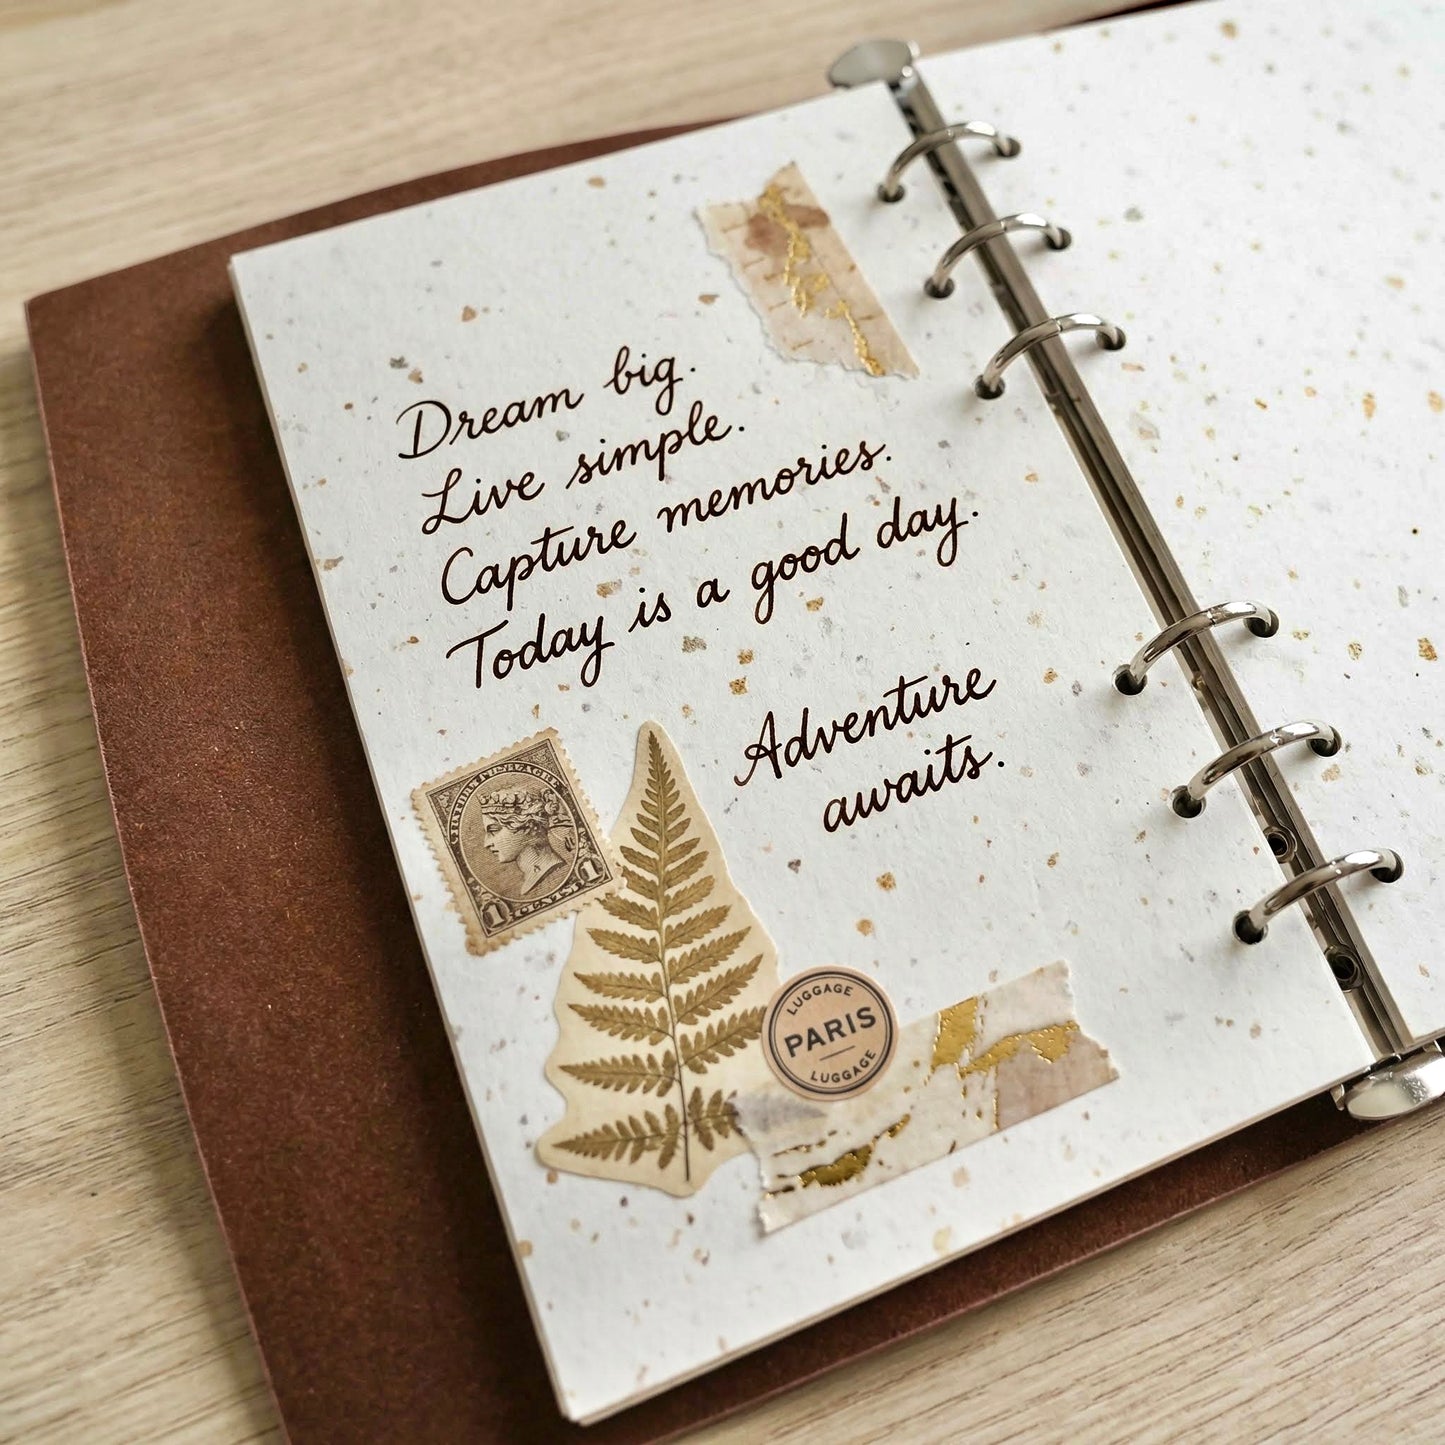 Dream big.
Live simple.
Capture memories.
Today is a good day.
Adventure
awaits.
1 CENTS 1
LUGGAGE
PARIS
LUGGAGE